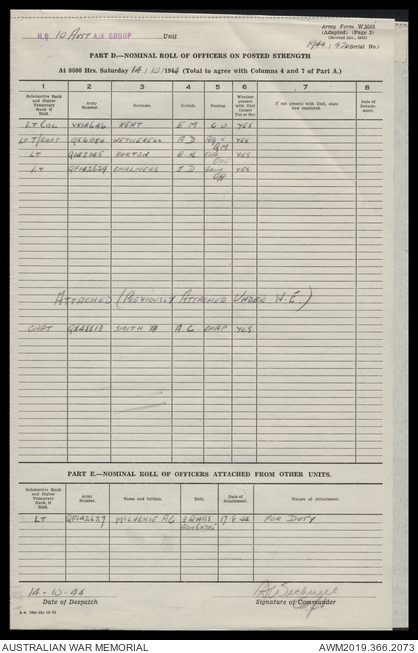 H.Q 10 AUST. A/A GROUP Unit
Army Form W.3008
(Adapted) (Page 2)
(Revised Jan., 1943)
1944/42 (Serial No.)
PART D.—NOMINAL ROLL OF OFFICERS ON POSTED STRENGTH
At 0600 Hrs. Saturday 14/10/1944 (Total to agree with Columns 4 and 7 of Part A.)
1 2 3 4 5 6 7 8
Substantive Rank and Higher Temporary Rank if Held. Army Number. Surname. Initials. Posting. Whether present with Unit (insert Yes or No) If not present with Unit, state how employed. Date of Detachment.
LT COL KENT E M C O YES
LT T/CAPT WETHERELL QM YES
LT BURTON YES
LT QF142629 CHALMERS J D YES
ATTACHED (PREVIOUSLY ATTACHED UNDER W.E.)
CAPT QX48813 SMITH A C CHAP YES
PART E.—NOMINAL ROLL OF OFFICERS ATTACHED FROM OTHER UNITS.
Substantive Rank and Higher Temporary Rank, if Held. Army Number. Name and Initials. Unit. Date of Attachment. Nature of Attachment.
LT QF142627 McLUCKIE 3 AWAS 17 9 44 FOR DUTY
14-10-44
Date of Despatch Signature of Commander
Capt
AUSTRALIAN WAR MEMORIAL AWM2019.366.2073